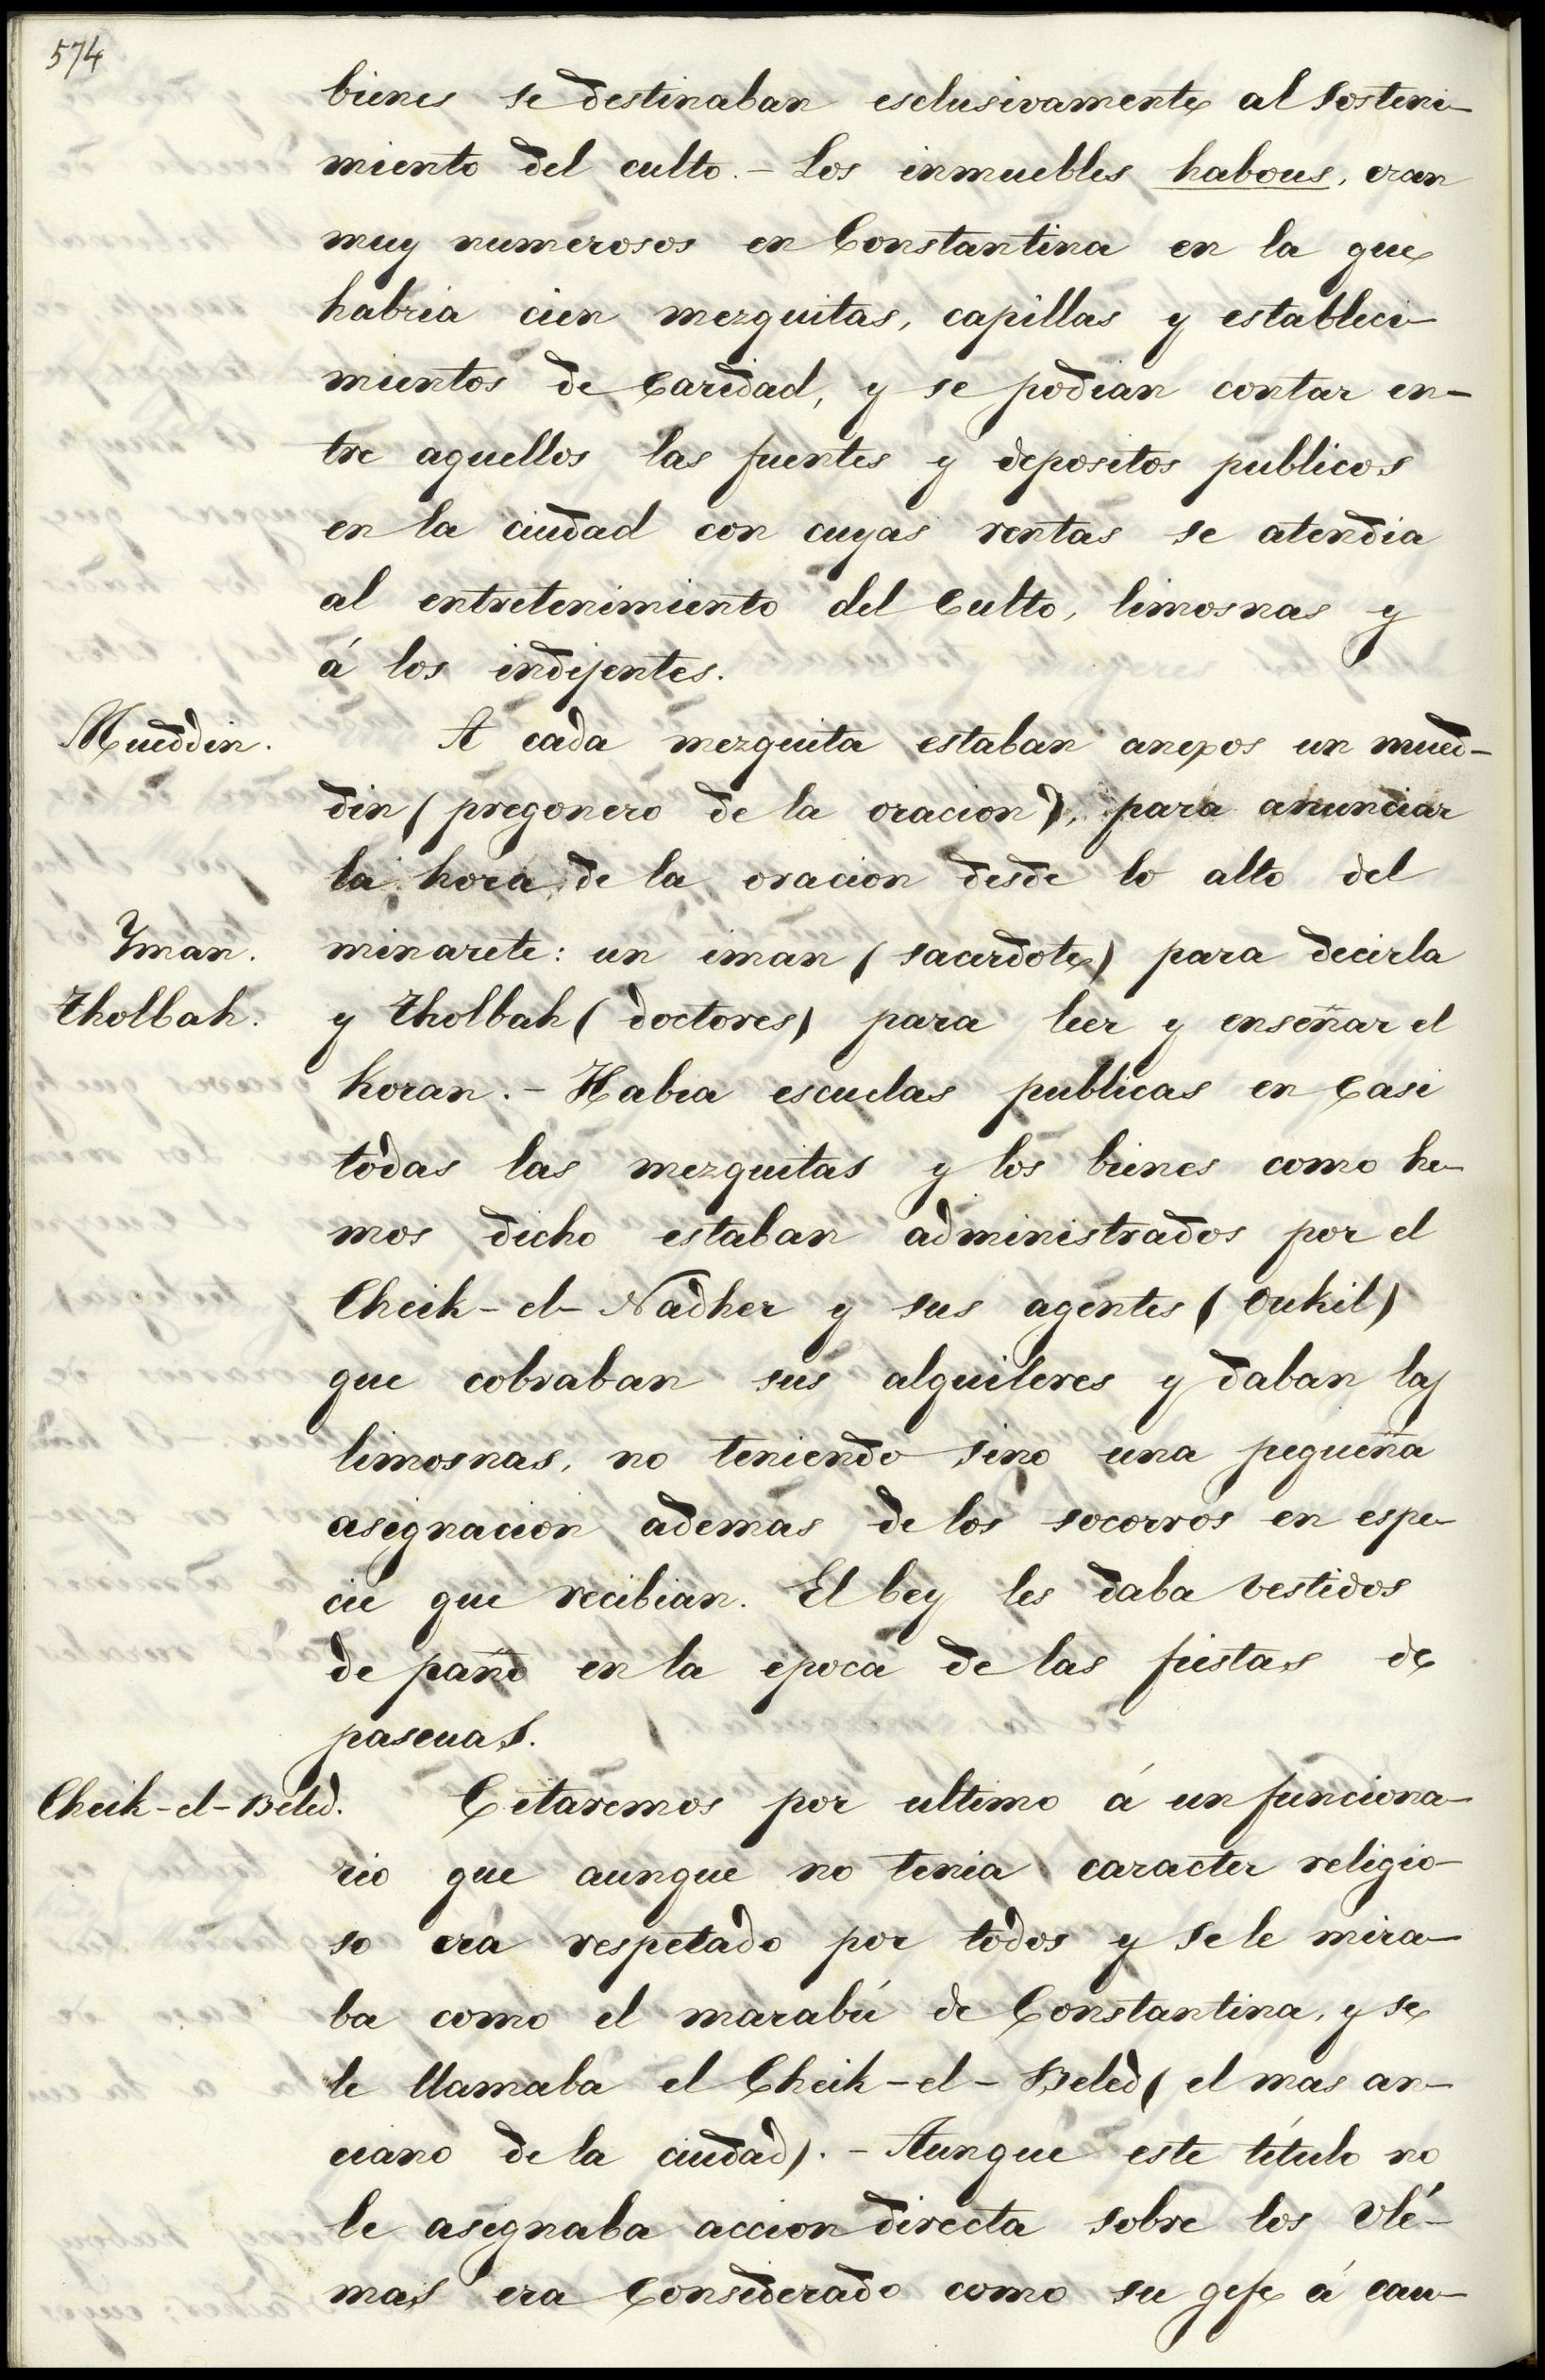 574
bienes se destinaban esclusivamente al sosteni-
miento del culto. - Los inmuebles habous, eran
muy numerosos en Constantina en la que
habria cien mezquitas, capillas y estableci-
mientos de caridad, y se podian contar en-
tre aquellos las fuentes y depositos publicos
en la ciudad con cuyas rentas se atendia
al entretenimiento del Culto, limosnas y
á los indijentes.
Mueddin. A cada mezquita estaban anexos un mued-
din (pregonero de la oracion), para anunciar
la hora de la oracion desde lo alto del
Yman. minarete: un iman (sacerdote) para decirla
Tholbah. y Tholbah (doctores) para leer y enseñar el
Koran. - Habia escuelas publicas en casi
todas las mezquitas y los bienes como he-
mos dicho estaban administrados por el
Cheik-el-Nadher y sus agentes (Oukil)
que cobraban sus alquileres y daban las
limosnas, no teniendo sino una pequeña
asignacion ademas de los socorros en espe-
cie que recibian. El bey les daba vestidos
de paño en la epoca de las fiestas de
pascuas.
Cheik-el-Beled. Citaremos por ultimo á un funciona-
rio que aunque no tenia caracter religio-
so era respetado por todos y se le mira-
ba como el marabú de Constantina, y se
le llamaba el Cheik-el-Beled (el mas an-
ciano de la ciudad). - Aunque este título no
le asignaba accion directa sobre los Ulé-
mas era considerado como su gefe á cau-